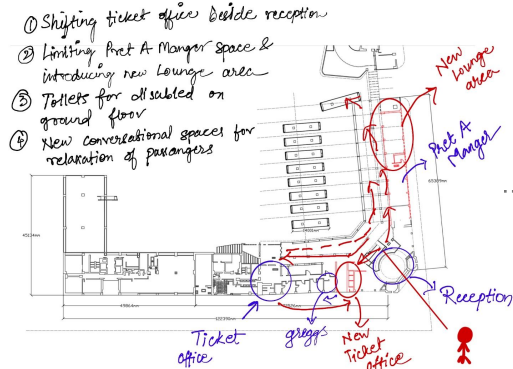 ① Shifting ticket office beside reception
② Limiting Pret A Manger space &
introducing new Lounge area
③ Toilets for disabled on
ground floor
④ New conversational spaces for
relaxation of passangers
New
Lounge
area
Pret A
Manger
Reception
Ticket
office
greggs
New
Ticket
office